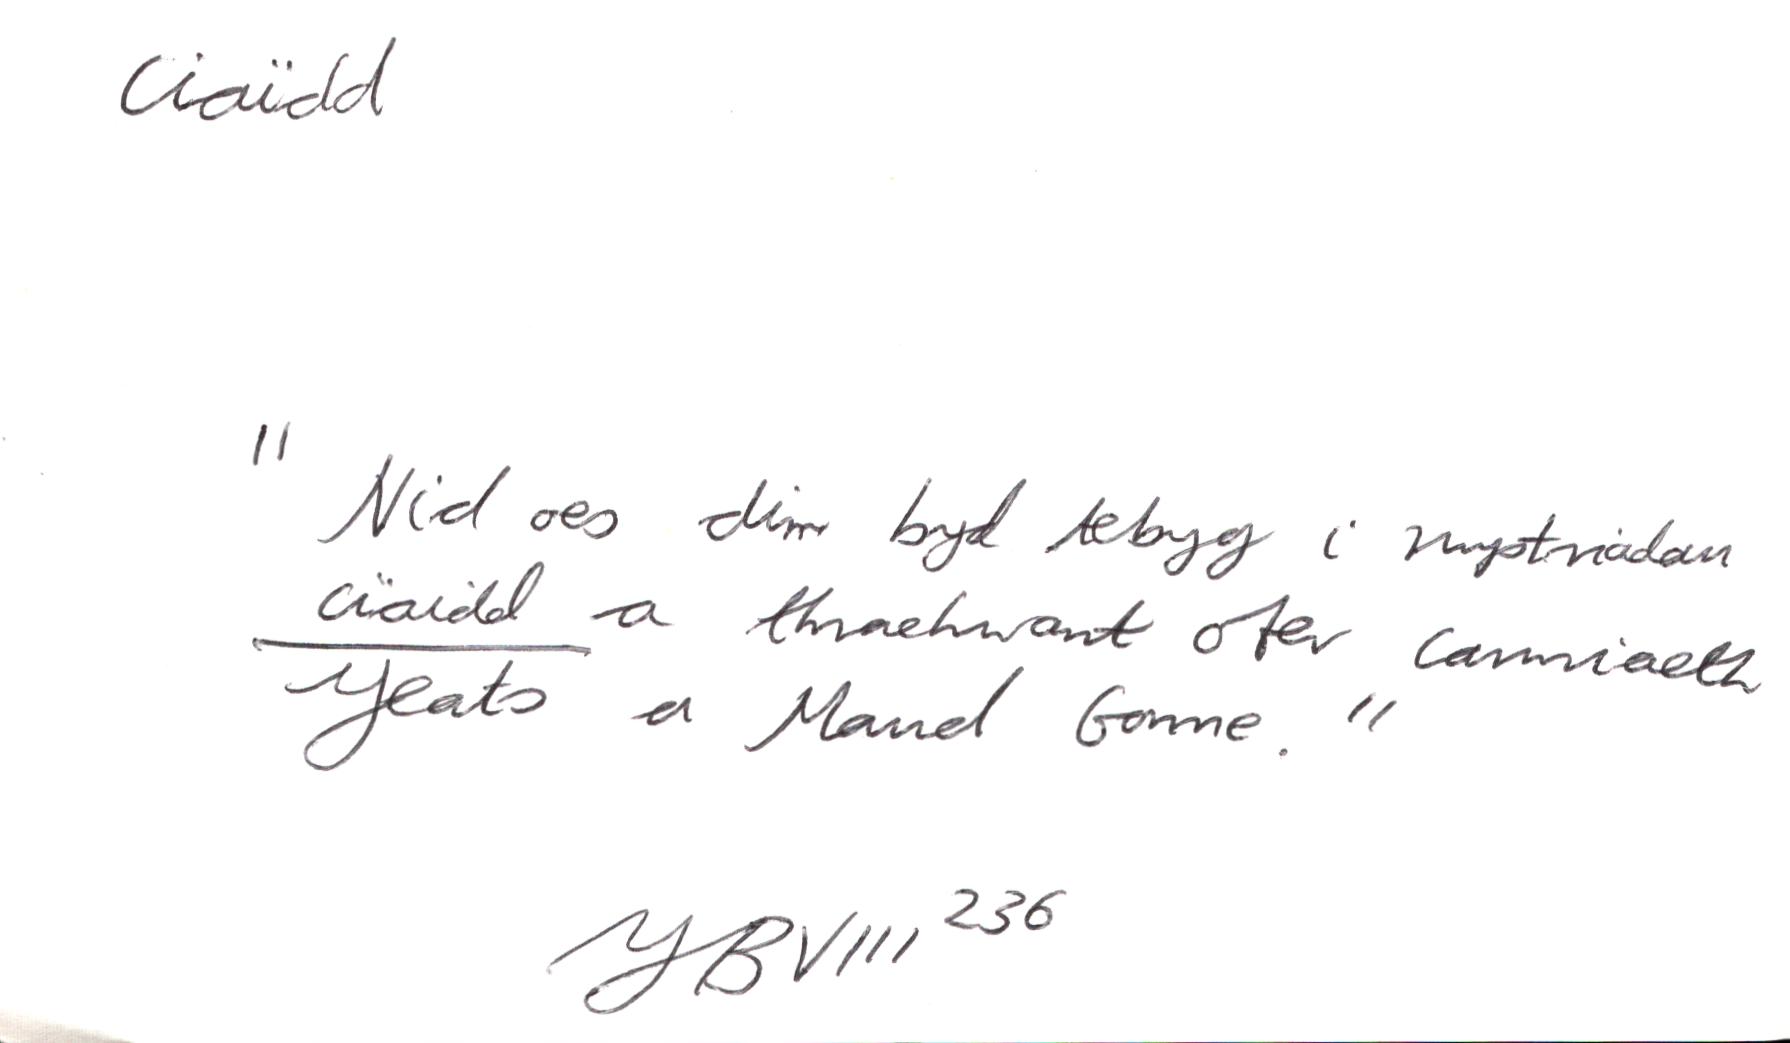 Ciaïdd
"Nid oes dim byd tebyg i nwydau
ciaidd a thrachwant ofer carwriaeth
Yeats a Maud Gonne."
YBVIII 236